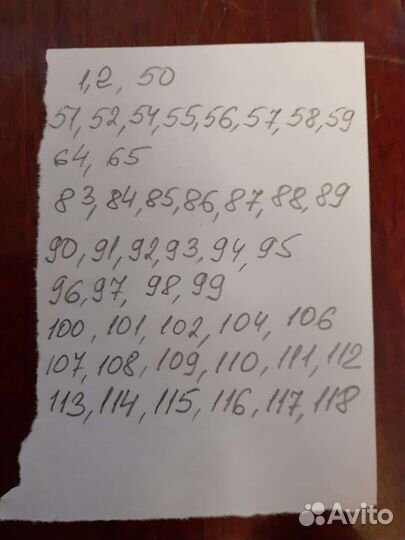 1,2, 50
51,52,54,55,56,57,58,59
64, 65
83,84,85,86,87,88,89
90,91,92,93,94,95
96,97, 98,99
100, 101, 102, 104, 106
107, 108, 109, 110, 111, 112
113,114, 115, 116, 117, 118
Avito